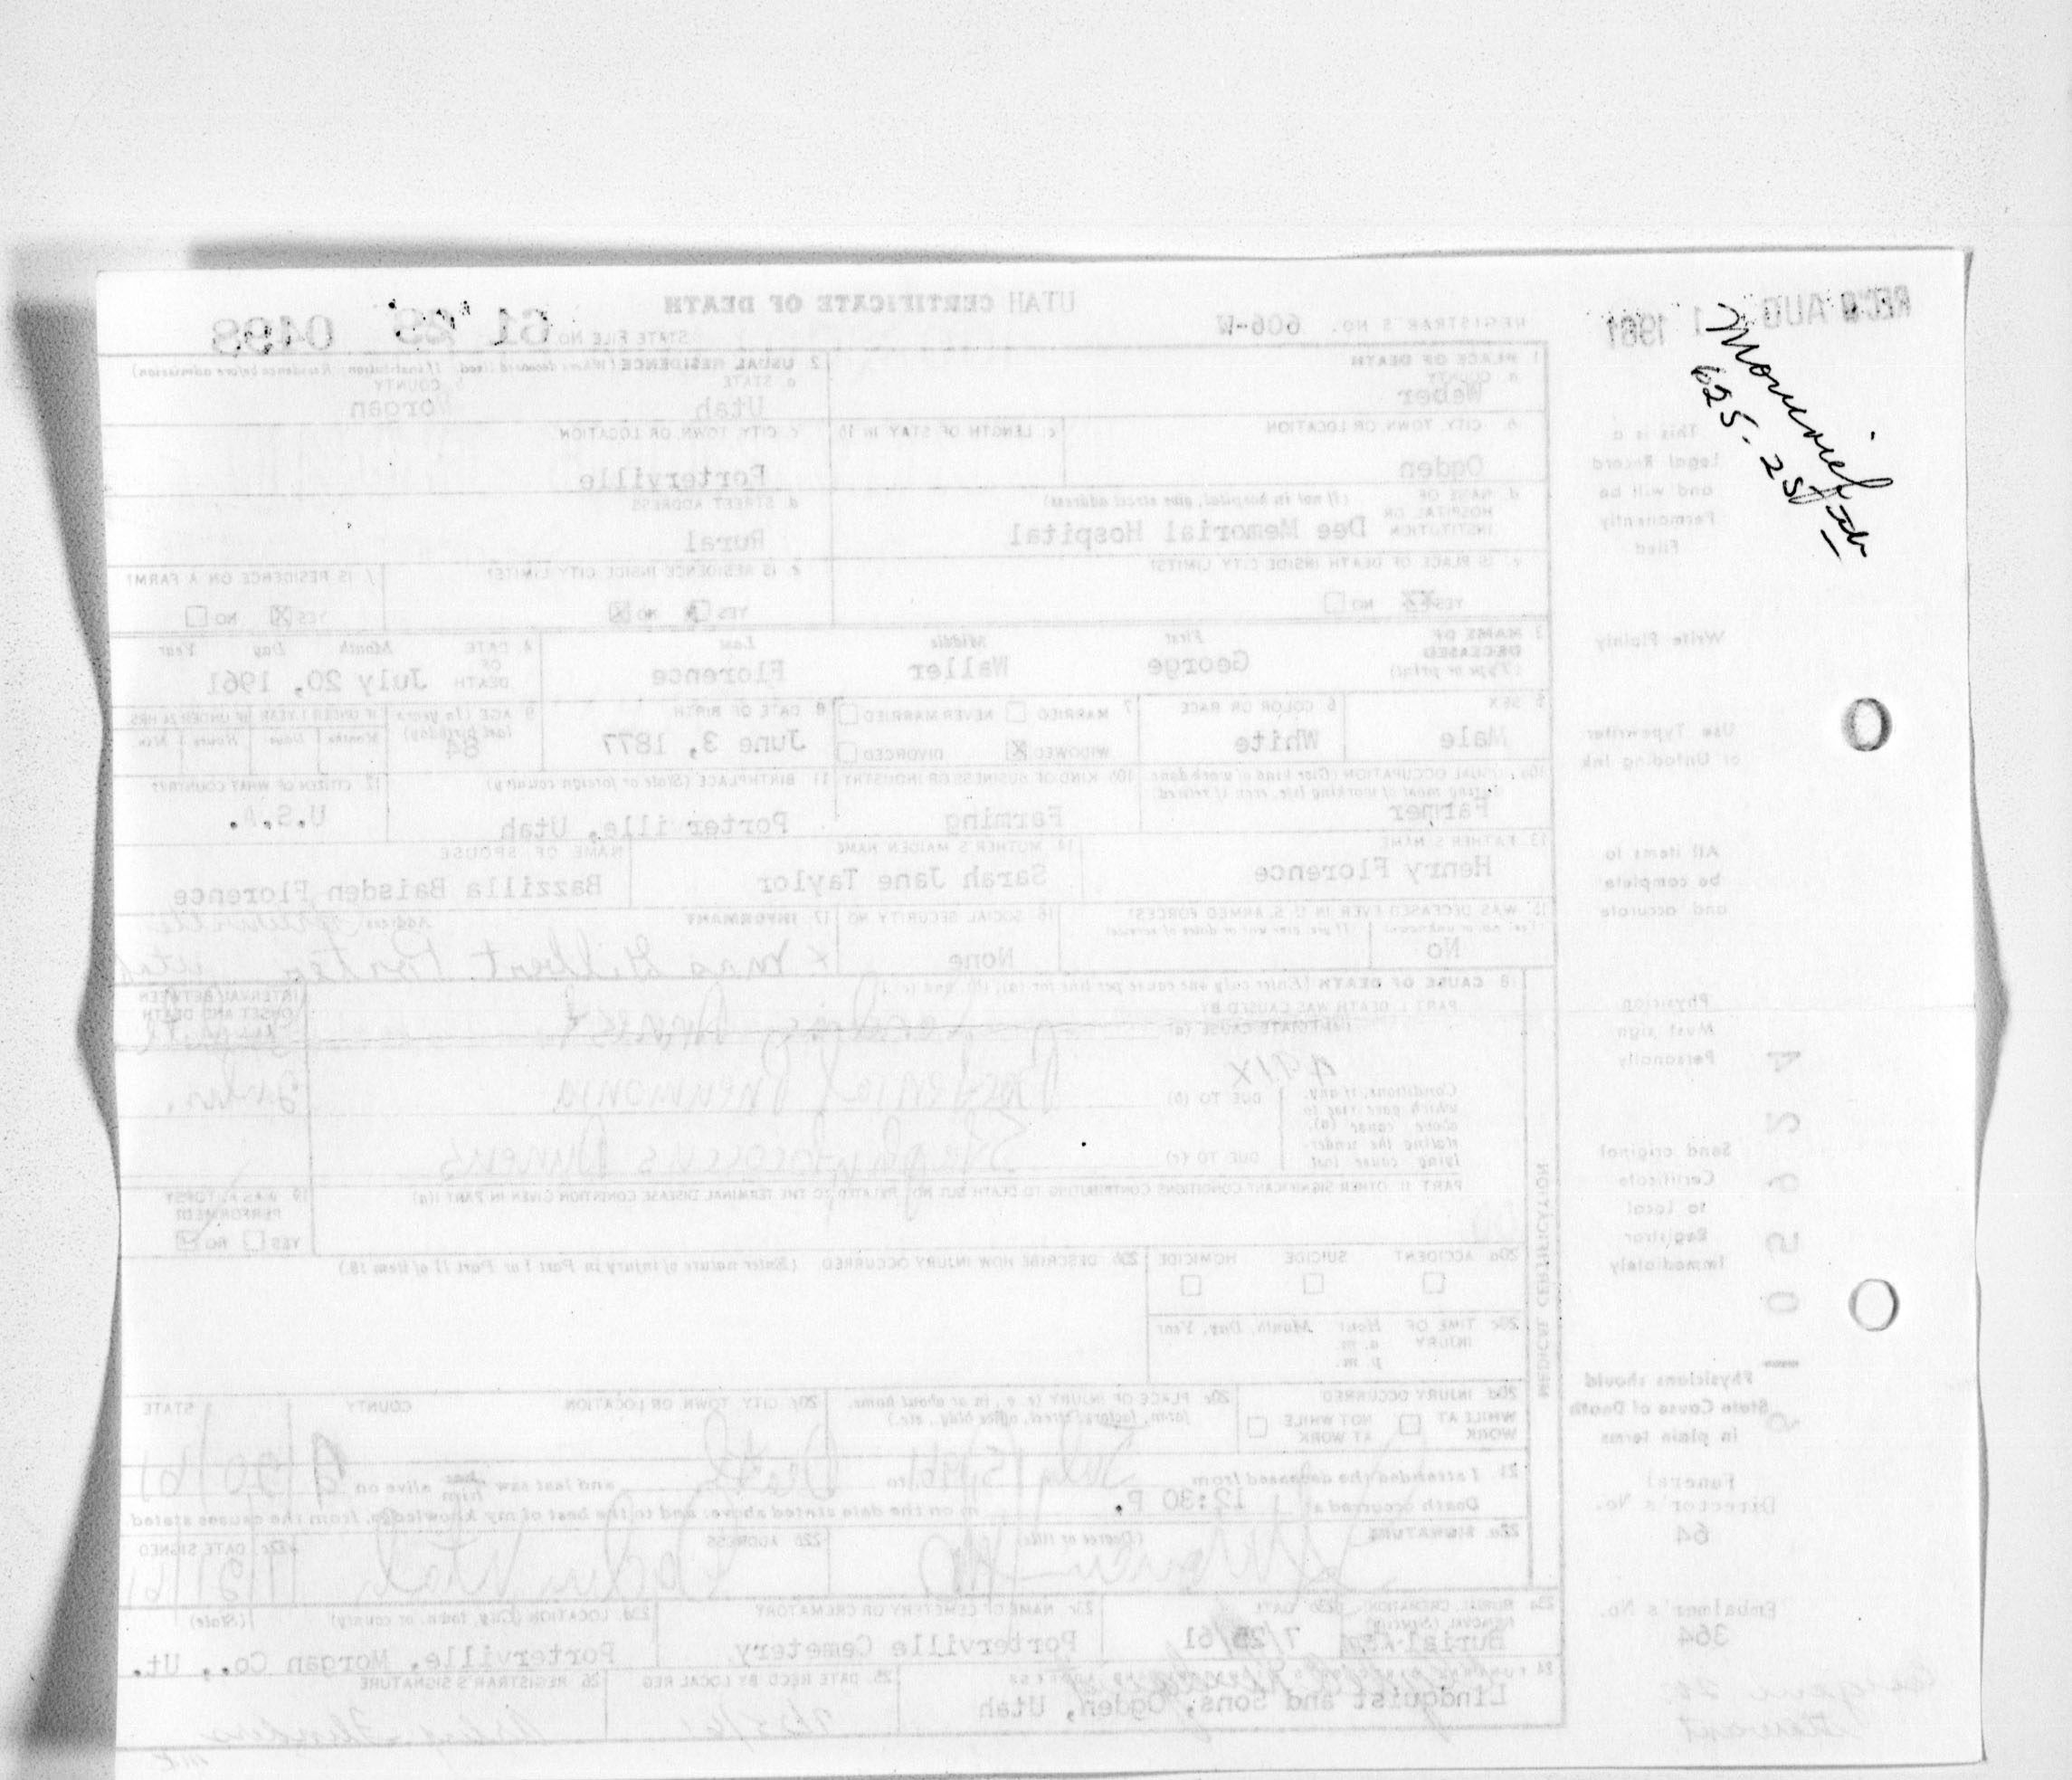 REC'D AUG 1 1961
UTAH CERTIFICATE OF DEATH
REGISTRAR'S NO. 606-W
STATE FILE NO. 61 29 0498
1 PLACE OF DEATH
a. COUNTY
Weber
2 USUAL RESIDENCE (Where deceased lived. If institution: Residence before admission)
a. STATE
Utah
b. COUNTY
Morgan
b. CITY, TOWN, OR LOCATION
Ogden
c. LENGTH OF STAY IN 1b
c. CITY, TOWN, OR LOCATION
Porterville
d. NAME OF HOSPITAL OR INSTITUTION (If not in hospital, give street address)
Dee Memorial Hospital
d. STREET ADDRESS
Rural
e. IS PLACE OF DEATH INSIDE CITY LIMITS?
YES NO
e. IS RESIDENCE INSIDE CITY LIMITS?
YES NO X
f. IS RESIDENCE ON A FARM?
YES X NO
3 NAME OF DECEASED (Type or print)
First Middle Last
George Waller Florence
4 DATE OF DEATH
Month Day Year
July 20, 1961
5 SEX
Male
6 COLOR OR RACE
White
7 MARRIED NEVER MARRIED
WIDOWED X DIVORCED
8 DATE OF BIRTH
June 3, 1877
9 AGE (In years last birthday)
84
IF UNDER 1 YEAR IF UNDER 24 HRS.
Months Days Hours Min.
10a USUAL OCCUPATION (Give kind of work done during most of working life, even if retired)
Farmer
10b KIND OF BUSINESS OR INDUSTRY
Farming
11 BIRTHPLACE (State or foreign country)
Porter ille, Utah
12 CITIZEN OF WHAT COUNTRY?
U.S.A.
13 FATHER'S NAME
Henry Florence
14 MOTHER'S MAIDEN NAME
Sarah Jane Taylor
NAME OF SPOUSE
Bazzilla Baisden Florence
15 WAS DECEASED EVER IN U. S. ARMED FORCES?
(Yes, no, or unknown) (If yes, give war or dates of service)
No
16 SOCIAL SECURITY NO
None
17 INFORMANT Address
x Mrs Gilbert Porter Porterville Utah
18 CAUSE OF DEATH (Enter only one cause per line for (a), (b), and (c).)
PART I DEATH WAS CAUSED BY
IMMEDIATE CAUSE (a) Cardiac Arrest
INTERVAL BETWEEN ONSET AND DEATH
491X
Conditions, if any, which gave rise to above cause (a), stating the underlying cause last
DUE TO (b) Bacterial Pneumonia
DUE TO (c) Staphylococcus Aureus
PART II. OTHER SIGNIFICANT CONDITIONS CONTRIBUTING TO DEATH BUT NOT RELATED TO THE TERMINAL DISEASE CONDITION GIVEN IN PART I (a)
19 WAS AUTOPSY PERFORMED?
YES NO
20a ACCIDENT SUICIDE HOMICIDE
20b DESCRIBE HOW INJURY OCCURRED (Enter nature of injury in Part I or Part II of item 18.)
20c TIME OF INJURY Hour Month, Day, Year
a. m.
p. m.
20d INJURY OCCURRED
WHILE AT WORK NOT WHILE AT WORK
20e PLACE OF INJURY (e. g., in or about home, farm, factory, street, office bldg., etc.)
20f CITY TOWN OR LOCATION COUNTY STATE
21 I attended the deceased from July 15, 1961 to Death and last saw him alive on
Death occurred at 12:30 P. m on the date stated above; and to the best of my knowledge, from the causes stated.
22a SIGNATURE (Degree or title)
22b ADDRESS
Ogden Utah
22c DATE SIGNED
23a BURIAL, CREMATION, REMOVAL (Specify)
Burial
23b DATE
7/25/61
23c NAME OF CEMETERY OR CREMATORY
Porterville Cemetery
23d LOCATION (City, town, or county) (State)
Porterville, Morgan Co., Ut.
24 FUNERAL DIRECTOR'S ADDRESS
Lindquist and Sons, Ogden, Utah
25 DATE RECD BY LOCAL REG
7/25/61
26 REGISTRAR'S SIGNATURE
MEDICAL CERTIFICATION
This is a
Legal Record
and will be
Permanently
Filed
Write Plainly
Use Typewriter
or Unfading Ink
All items to
be complete
and accurate
Physician
Must sign
Personally
Send original
Certificate
to Local
Registrar
Immediately
Physicians should
State Cause of Death
in plain terms
Funeral
Director's No.
64
Embalmer's No.
364
625-25